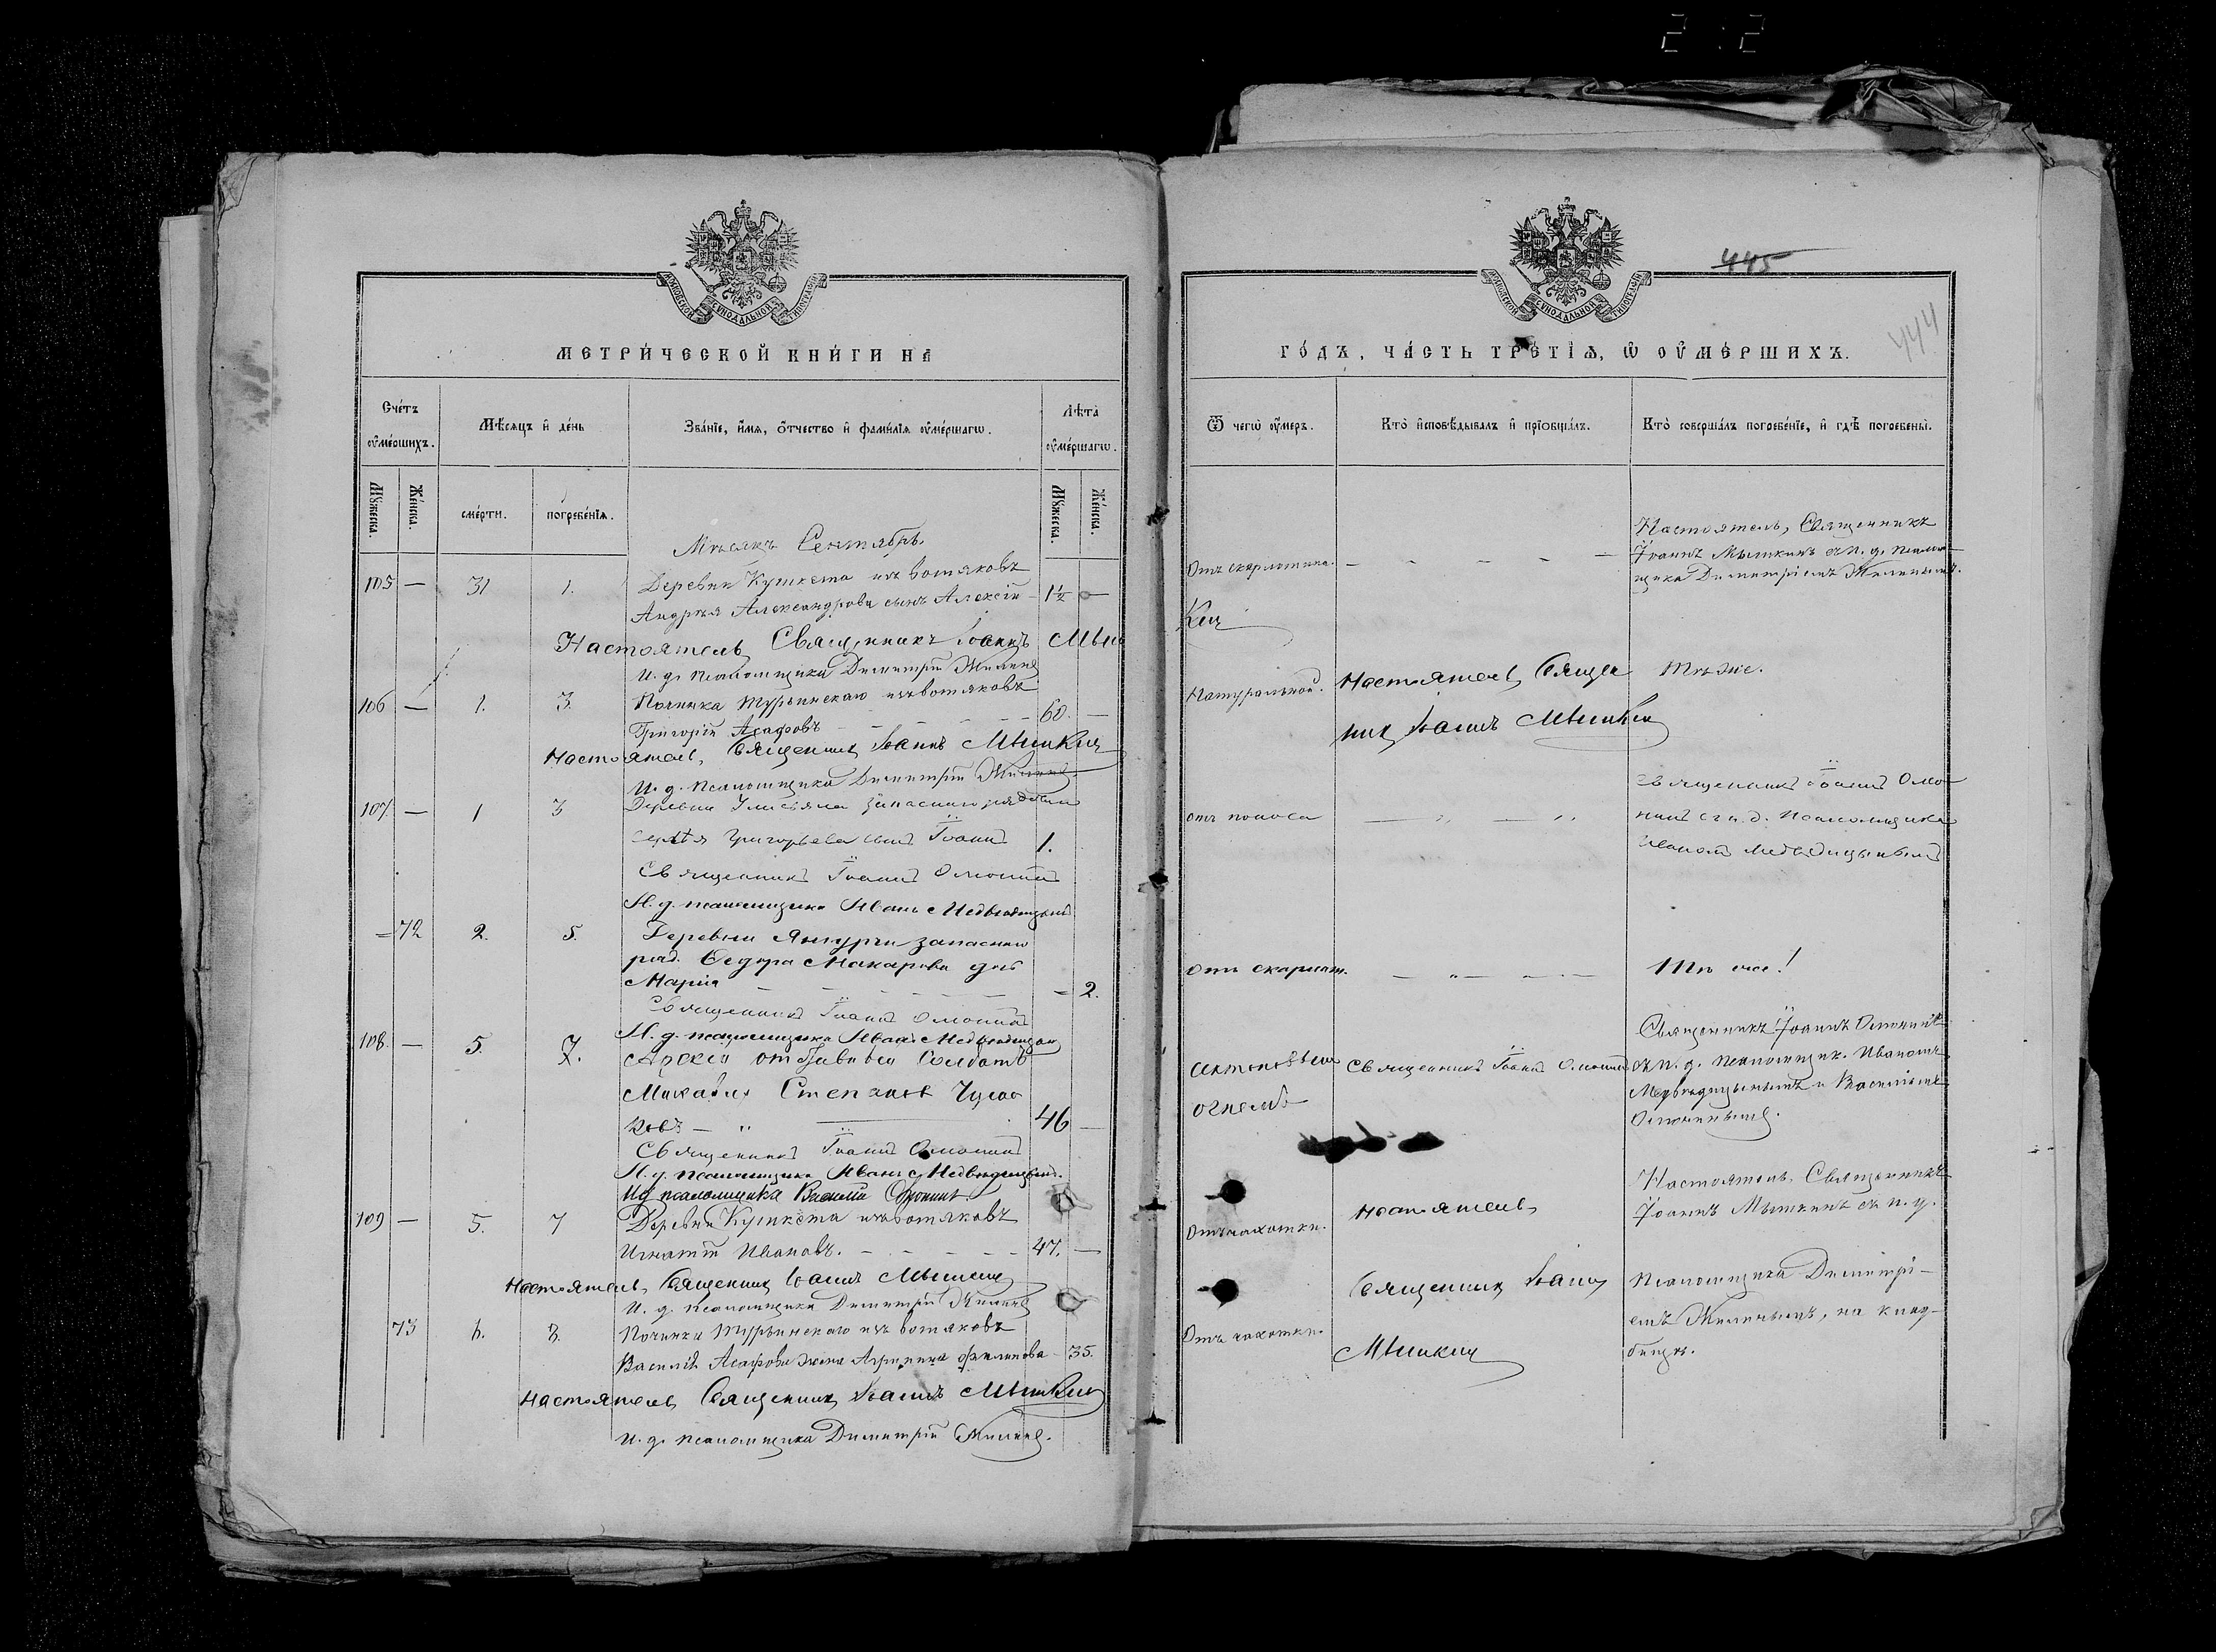 2 : 2
МОСКОВСКОЙ СѴНОДАЛЬНОЙ ТИПОГРАФІИ
МЕТРИ́ЧЕСКОЙ КНИ́ГИ НА
Счетъ ᲂумершихъ.
Мѣсяцъ и день
Званіе, имя, отчество и фамилія ᲂумершагѡ.
Лѣта ᲂумершагѡ.
Мꙋжеска.
Женска.
смерти.
погребенія.
Мꙋжеска.
Женска.
Мѣсяцъ Сентябрь.
105 — 31 1. Деревни Кушкета изъ вотяковъ
Андрея Александрова сынъ Алексѣй 1½ —
Настоятель Священникъ Іоаннъ Мыш
И. д. псаломщика Димитрій Жилинъ
106 — 1. 3. Починка Турьинскаго изъ вотяковъ
Григорій Агафовъ — — — — — 60. —
Настоятель, Священникъ Іоаннъ Мышкин
И. д. псаломщика Димитрій Жилинъ
107. — 1 3 Деревни запаснаго рядоваго
Григорьева сынъ Іоаннъ 1.
Священникъ Іоаннъ Омонинъ
И. д. псаломщика Иванъ Медвѣдицынъ
= 72 2. 5. Деревни Янгурчи запаснаго
ряд. Ѳедора Макарова дочь
Марія — — — — — = 2.
Священникъ Іоаннъ Омонинъ
И. д. псаломщика Иванъ Медвѣдицын
108. — 5. 7. отставной Солдатъ
Степановъ
— " 46 —
Священникъ Іоаннъ Омонинъ
И. д. псаломщика Иванъ Медвѣдицынъ.
Ид псаломщика Василій Омонинъ.
109 — 5. 7 Деревни Кушкета изъ вотяковъ
Игнатій Ивановъ. — — — — 47. —
Настоятель, Священник Іоаннъ Мышкин
И. д. псаломщика Димитрій Жилинъ
73 6. 8. Починка Турьинскаго изъ вотяковъ
Василія Агафова жена Агрипина Филипова 35.
Настоятель Священник Іоаннъ Мышкин
И. д. псаломщика Димитрій Жилинъ.
445
444
МОСКОВСКОЙ СѴНОДАЛЬНОЙ ТИПОГРАФІИ
ГО́ДЪ, ЧА́СТЬ ТРЕ́ТІѦ, Ѡ ОУМЕ́РШИХЪ.
Ѿ чегѡ ᲂумеръ.
Кто исповѣдывалъ и пріобщалъ.
Кто совершалъ погребеніе, и гдѣ погребены.
Отъ скарлатина. — — — — —
Настоятель, Священникъ
Іоаннъ Мышкинъ съ и. д. псалом-
щика Димитріемъ Жилинымъ.
Кин
Натуральной.
Настоятель, Священ
ник Іоаннъ Мышкин
Тѣже.
отъ поноса — " — "
Священникъ Іоаннъ Омо-
нинъ съ и. д. псаломщика
Иваномъ Медвѣдицынымъ
отъ скарлат. — " — —
Тѣ же!
огнемъ
Священникъ Іоаннъ Омонинъ
Священникъ Іоаннъ Омонинъ
съ и. д. псаломщик. Иваномъ
Медвѣдицынымъ и Василіемъ
Омонинымъ.
Отъ чахотки.
Настоятель,
Священник Іоанн
Мышкин
Настоятель, Священникъ
Іоаннъ Мышкинъ съ и. д.
псаломщика Димитрі-
емъ Жилинымъ, на клад-
бищѣ.
Отъ чахотки.